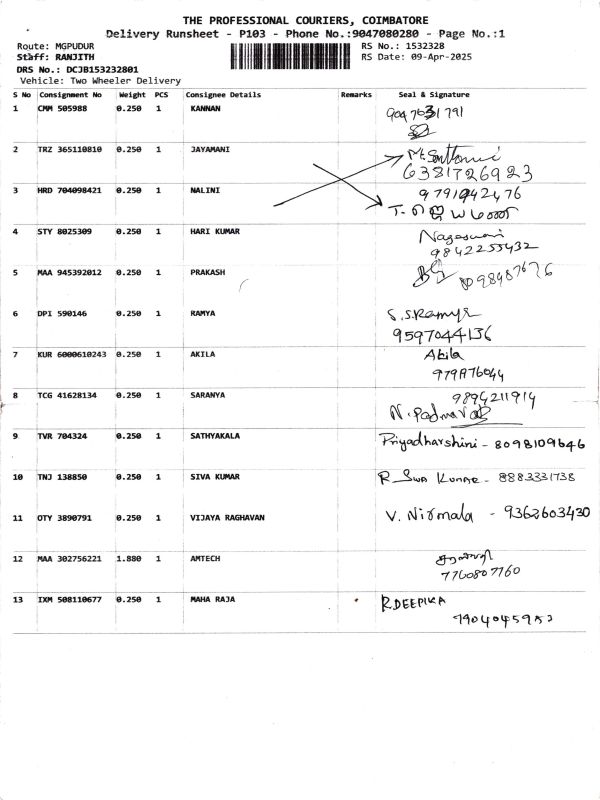 THE PROFESSIONAL COURIERS, COIMBATORE
Delivery Runsheet - P103 - Phone No.:9047080280 - Page No.:1
Route: MGPUDUR RS No.: 1532328
Staff: RANJITH RS Date: 09-Apr-2025
DRS No.: DCJB153232801
Vehicle: Two Wheeler Delivery
S No Consignment No Weight PCS Consignee Details Remarks Seal & Signature
1 CMM 505988 0.250 1 KANNAN
2 TRZ 365110810 0.250 1 JAYAMANI
6381726923
3 HRD 704098421 0.250 1 NALINI 9791942476
4 STY 8025309 0.250 1 HARI KUMAR Nageswari
9842255432
5 MAA 945392012 0.250 1 PRAKASH
6 DPI 590146 0.250 1 RAMYA S.S.Ramya
9597044136
7 KUR 6000610243 0.250 1 AKILA Akila
8 TCG 41628134 0.250 1 SARANYA 9894211914
N. Padmavati
9 TVR 704324 0.250 1 SATHYAKALA Priyadharshini - 8098109646
10 TNJ 138850 0.250 1 SIVA KUMAR R Siva Kumar - 8883331738
11 OTY 3890791 0.250 1 VIJAYA RAGHAVAN V. Nirmala - 9362603430
12 MAA 302756221 1.880 1 AMTECH
7760807760
13 IXM 508110677 0.250 1 MAHA RAJA R.DEEPIKA